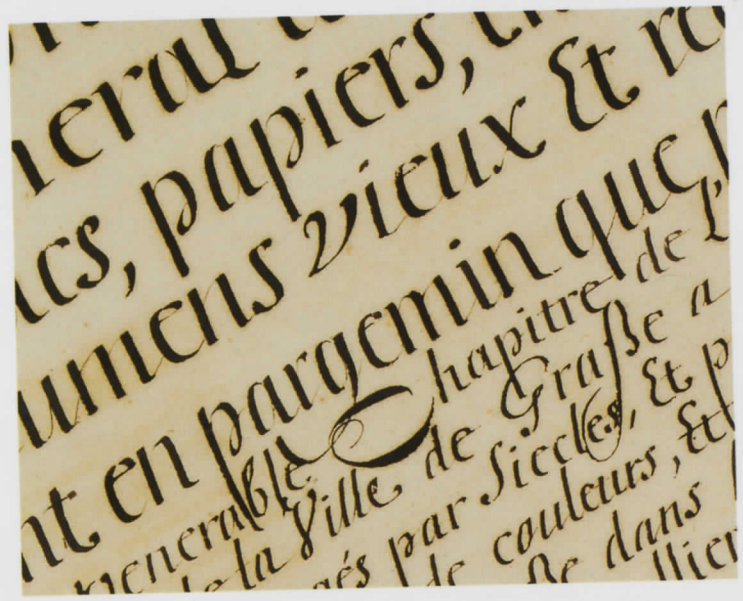 neral
ncs, papiers,
umens vieux Et
nt en pargemin que
venerable Chapitre de L'
de la Ville de Graße a
gés par Siecles, Et p
de couleurs, Et
ße dans
llier